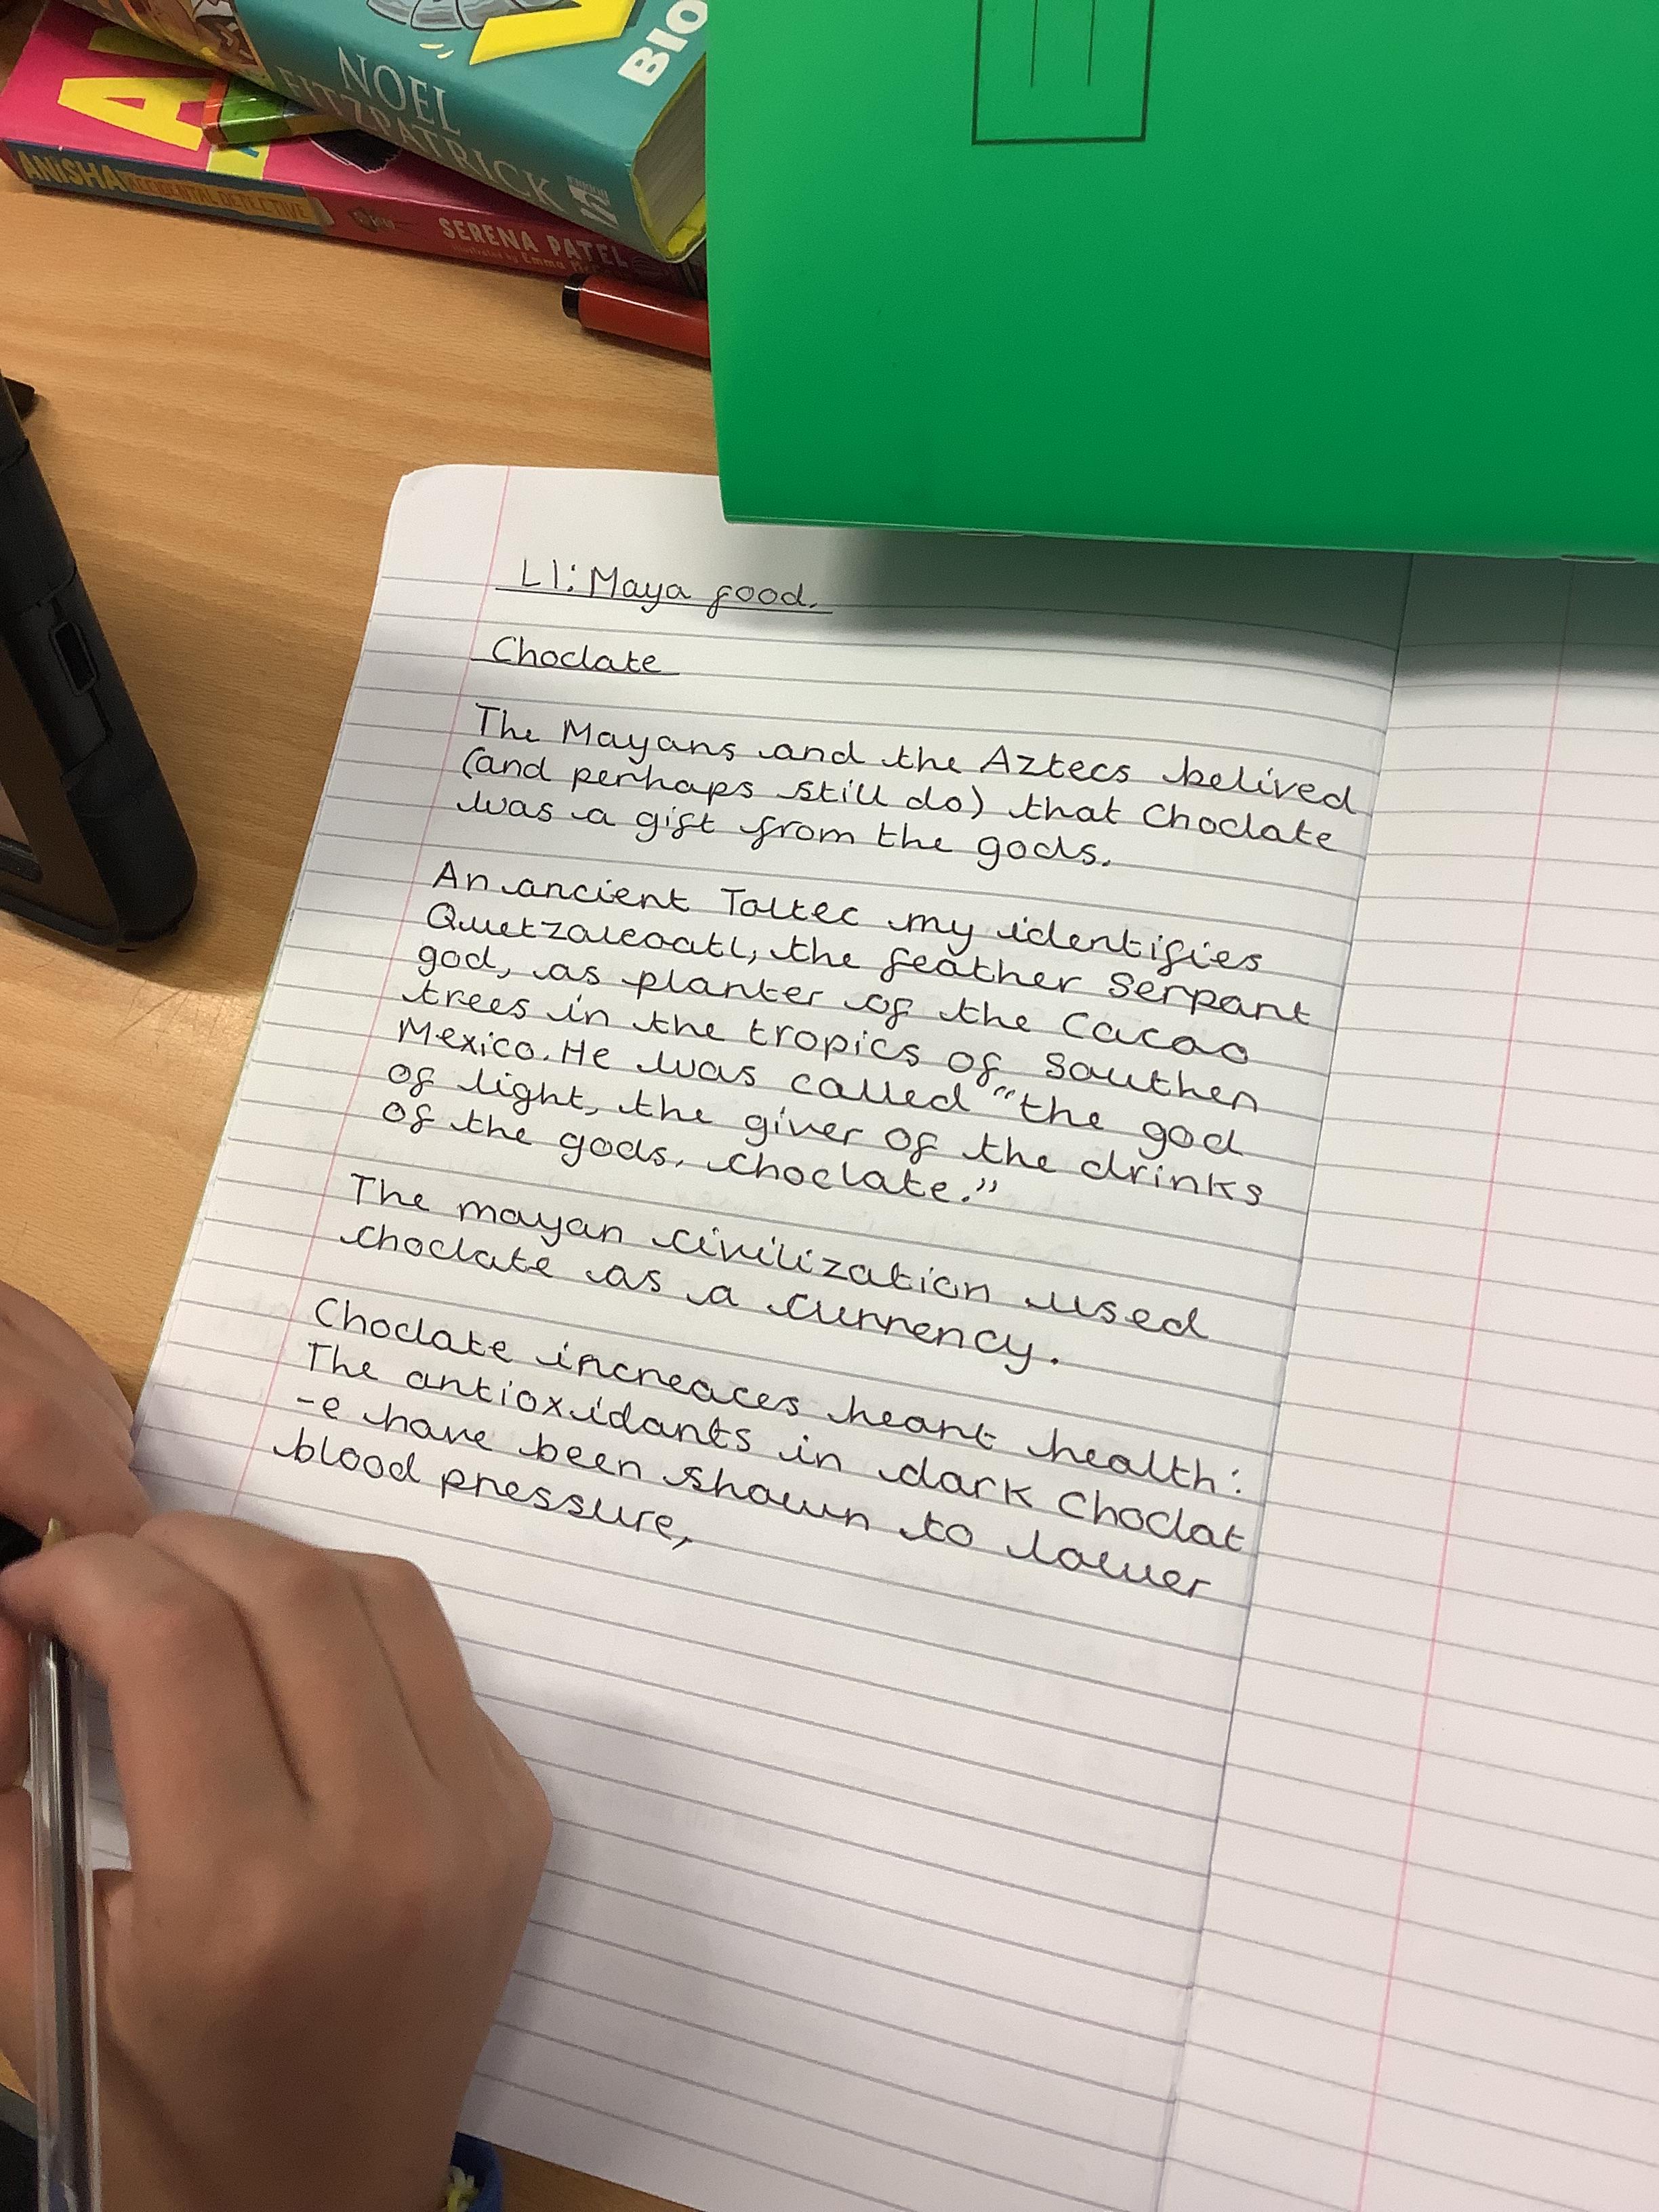 BIO
NOEL
FITZPATRICK
A
ANISHA ACCIDENTAL DETECTIVE
SERENA PATEL
Illustrated by Emma
L1: Maya food.
Choclate
The Mayans and the Aztecs belived
(and perhaps still do) that Choclate
was a gift from the gods.
An ancient Toltec my identifies
Quetzalcoatl, the feather Serpant
god, as planter of the Cacao
trees in the tropics of Southen
Mexico. He was called "the god
of light, the giver of the drinks
of the gods, choclate."
The mayan civilization used
choclate as a currency.
Choclate increaces heart health:
The antioxidants in dark Choclat
-e have been shown to lower
blood pressure,